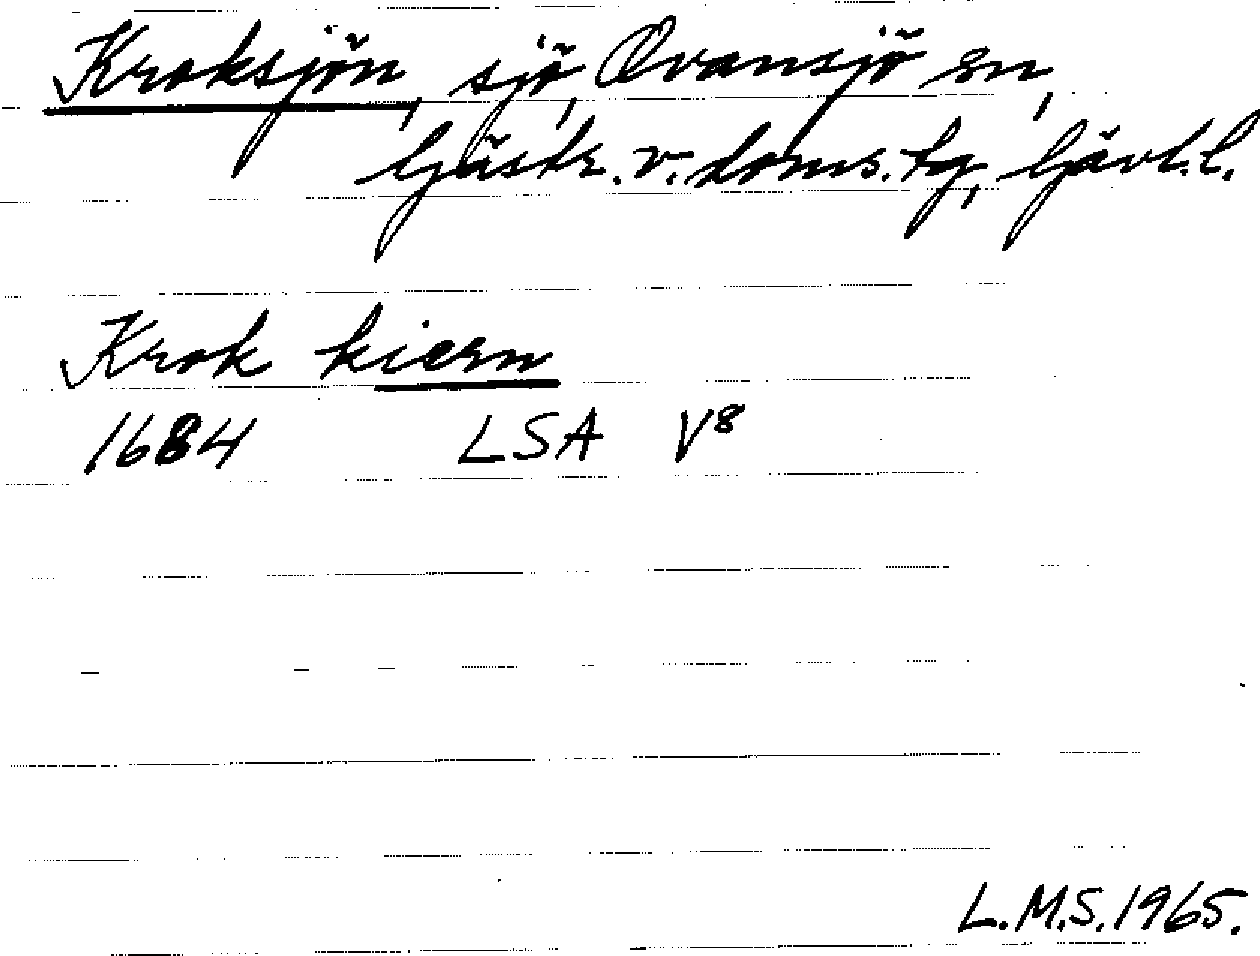 Kroksjön, sjö, Ovansjö sn,
Gästr. v. doms. tg, Gävl. l.
Krok kiern
1684 LSA V8
L.M.S. 1965.